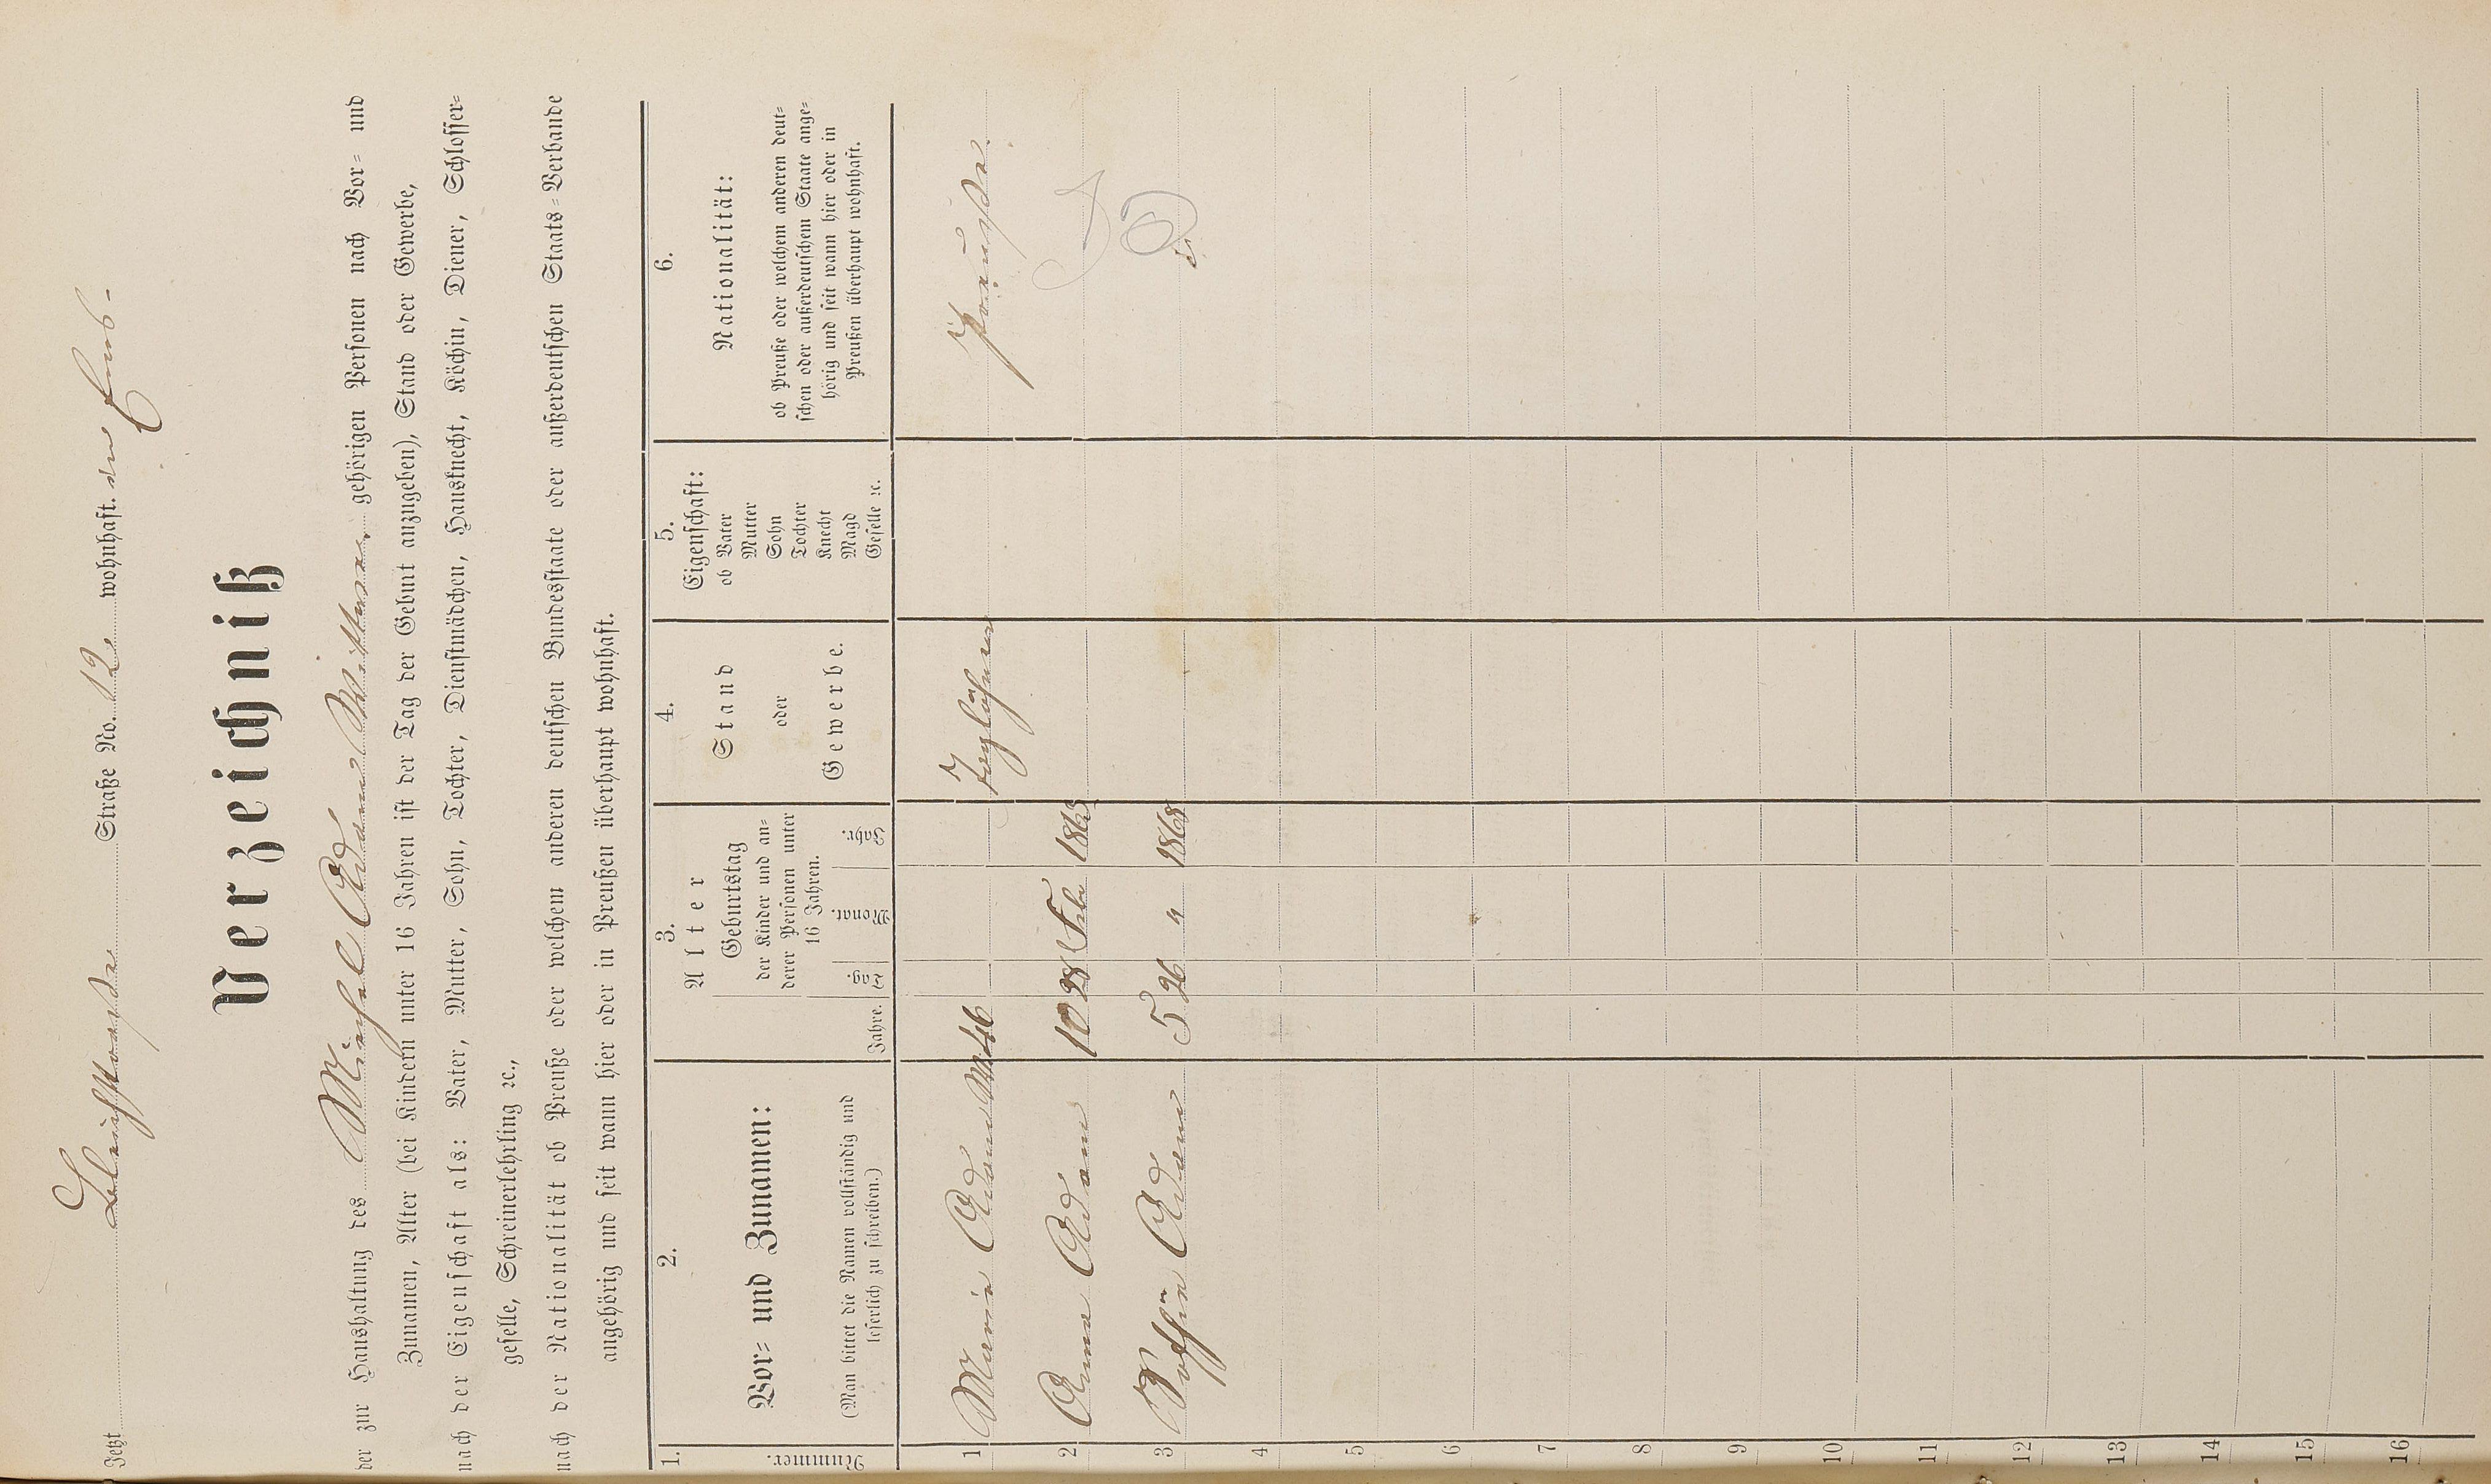 Jetzt Bleichstraße Straße No. 12 wohnhaft. in Ems -
Verzeichniß
der zur Haushaltung des Michel Adam Wittwe gehörigen Personen nach Vor= und
Zunamen, Alter (bei Kindern unter 16 Jahren ist der Tag der Geburt anzugeben), Stand oder Gewerbe,
nach der Eigenschaft als: Vater, Mutter, Sohn, Tochter, Dienstmädchen, Hausknecht, Köchin, Diener, Schlosser=
geselle, Schreinerlehrling ꝛc.,
nach der Nationalität ob Preuße oder welchem anderen deutschen Bundesstaate oder außerdeutschen Staats=Verbande
angehörig und seit wann hier oder in Preußen überhaupt wohnhaft.
1.
Nummer.
2.
Vor= und Zunamen:
(Man bittet die Namen vollständig und
leserlich zu schreiben.)
3.
Alter
Geburtstag
der Kinder und an=
derer Personen unter
16 Jahren.
Jahre. Tag. Monat. Jahr.
4.
Stand
oder
Gewerbe.
5.
Eigenschaft:
ob Vater
Mutter
Sohn
Tochter
Knecht
Magd
Geselle ꝛc.
6.
Nationalität:
ob Preuße oder welchem anderen deut=
schen oder außerdeutschem Staate ange=
hörig und seit wann hier oder in
Preußen überhaupt wohnhaft.
1 Maria Adam W. 46 Taglöhner Preuße.
2 Anna Adam 10 28 Feb 1863
3 Sophie Adam 5 26 " 1868
4
5
6
7
8
9
10
11
12
13
14
15
16